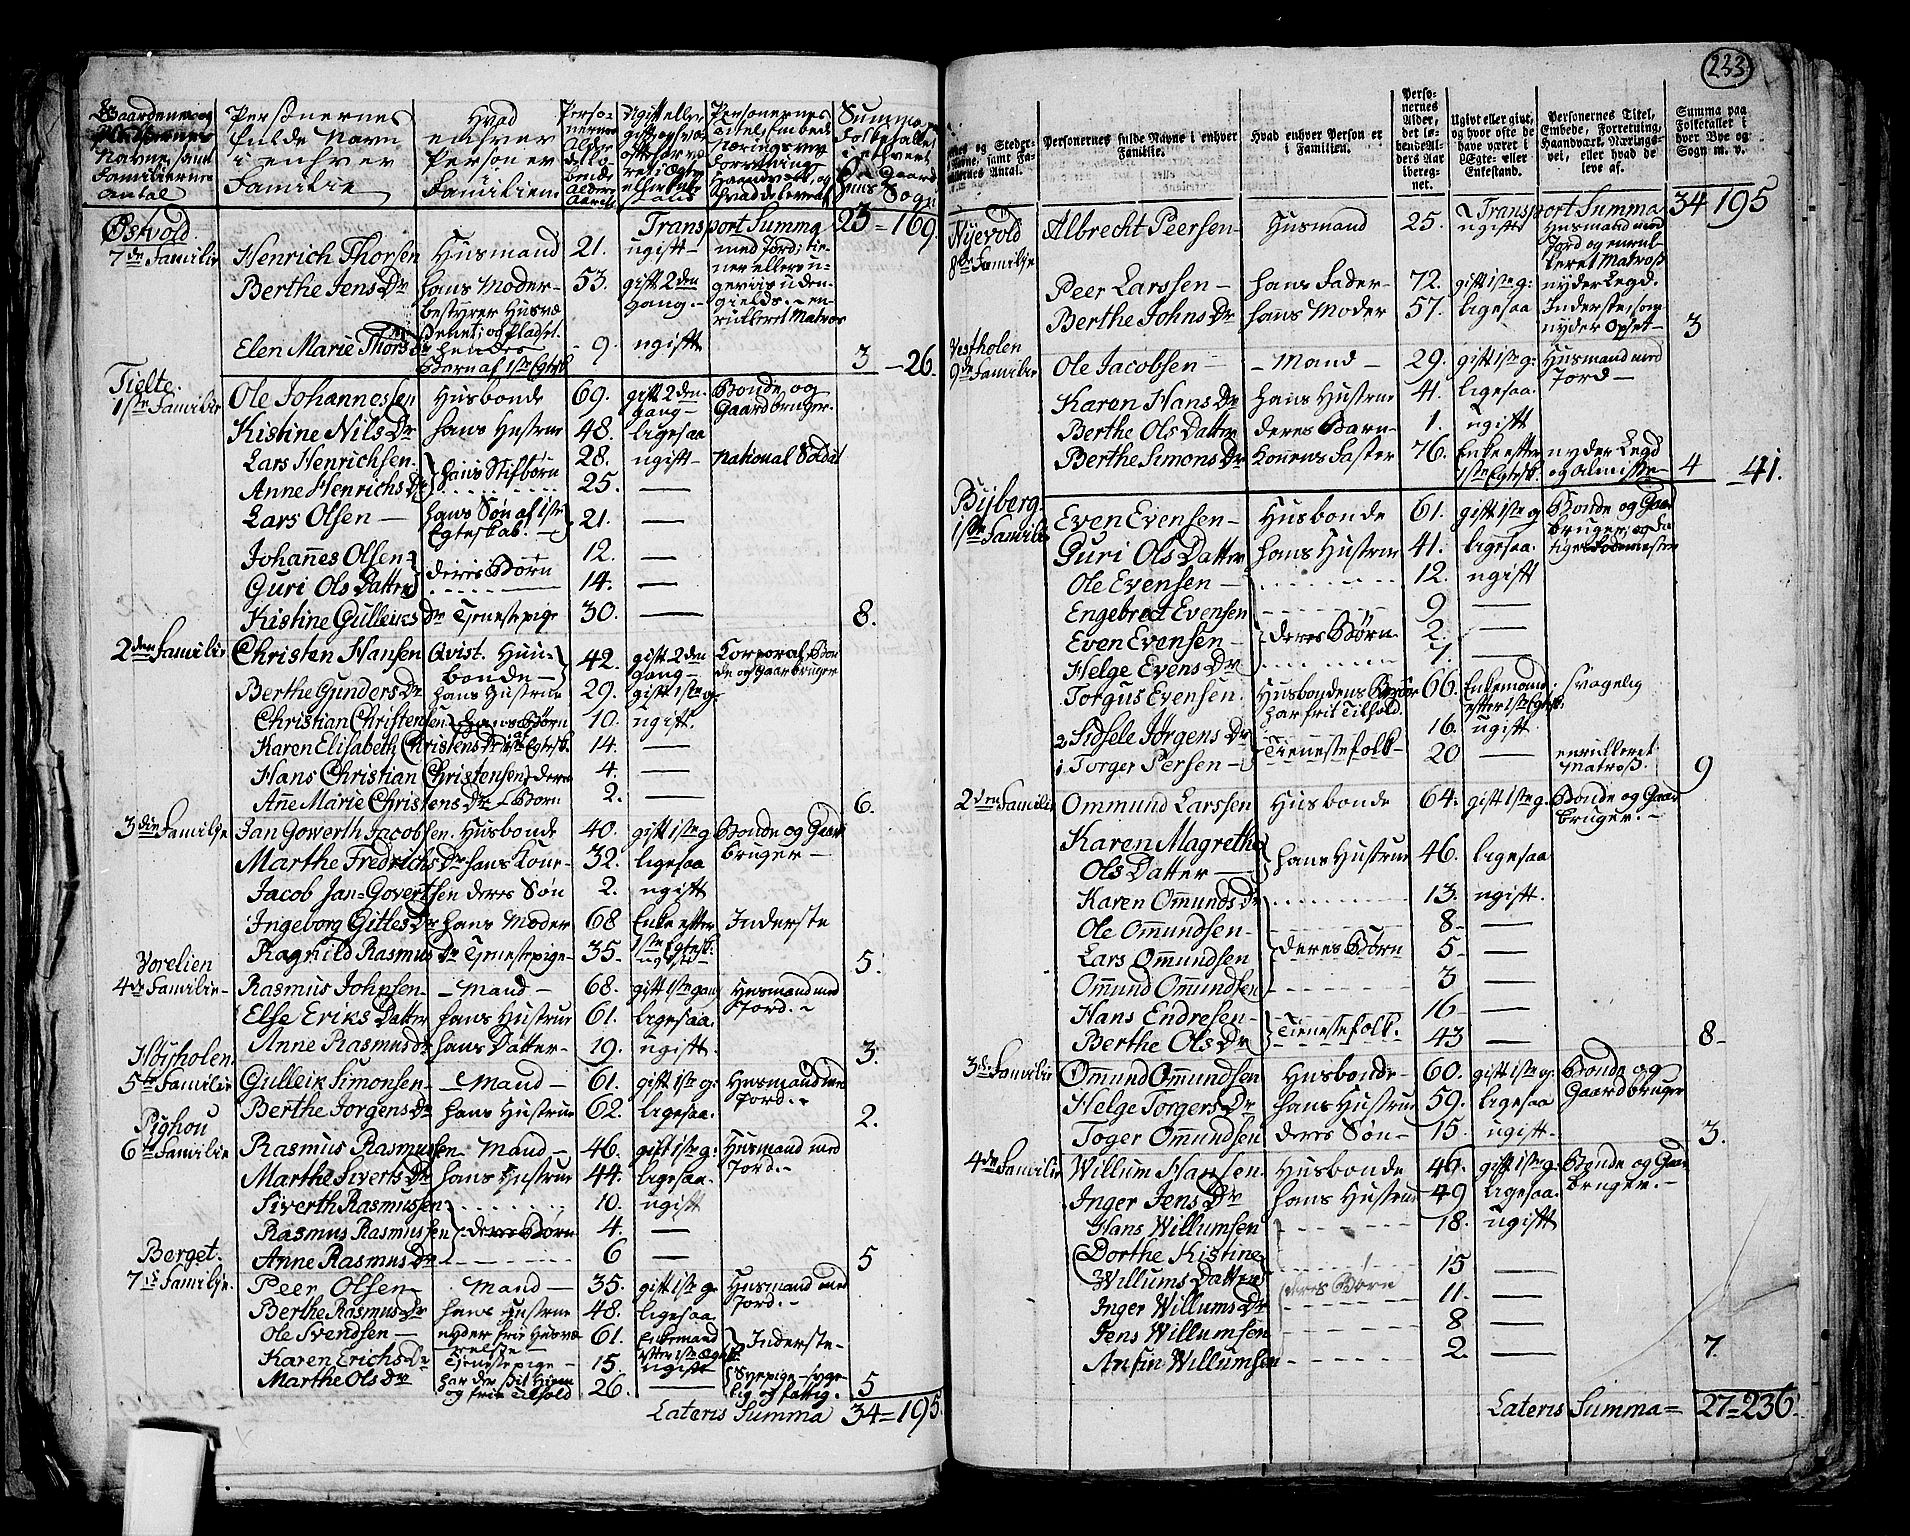 Personernes fulde Navn i enhver Familie
Hvad enhver Person er i Familien
Østvold Transport Summa 23 = 169.
7de Familie Henrich Thorsen Husmand 21. ugift med Jord
Berthe Jens Dr hans Moder bestyrer Husvæ 53. gift 2den Gang
enrulleret Matros
Elen Marie Thors Dr hendes Barn af 1ste Egtesk. 9. ugift 3 - 26.
Tielte.
1ste Familie Ole Johannessen Husbonde 69. gift 2den Gang Bonde og Gaardbruger.
Kistine Nils Dr hans Hustrue 48. ligesaa
Lars Henrichsen. hans Stifbørn 28. ugift national Soldat
Anne Henrichs Dr 25. —
Lars Olsen hans Søn af 1ste Egteskab. 21. —
Johannes Olsen deres Børn 12. —
Guri Ols Datter 14. —
Kistine Gulleiks Dr Tjenestepige 30. — 8.
2den Familie Christen Hansen Qvist. Huusbonde 42. gift 2den Gang Corporal, Bonde og Gaarbruger
Berthe Gunders Dr hans Hustrue 29. gift 1ste g:
Christian Christensen hans Børn 10. ugift.
Karen Elisabeth Christens Dr af 1ste Egtesk. 14. —
Hans Christian Christensen deres 4. —
Anne Marie Christens Dr Børn 2. — 6.
3die Familje Jan Gowerth Jacobsen. Husbonde 40. gift 1ste g. Bonde og Gaard bruger
Marthe Fredrichs Dr hans Kone 32. ligesaa
Jacob Jan-Govertsen deres Søn 2. ugift
Ingeborg Gittes Dr hans Moder 68 Enke efter 1ste Egtesk. Inderste
Ragnild Rasmus Dr Tjenestepige 35. ugift 5.
Vorelien
4de Familie Rasmus Johnsen Mand 68. gift 1ste gang Husmand med Jord.
Else Eriks Datter hans Hustrue 61. ligesaa.
Anne Rasmus Dr hans Datter 19. ugift. 3.
Høyholen.
5te Familie Gulleik Simonsen Mand 61. gift 1ste g: Husmand med Jord.
Berthe Jorgens Dr hans Hustrue 62. ligesaa. 2.
Pighou
6te Familie Rasmus Rasmussen Mand 46. gift 1ste g: Husmand med Jord.
Marthe Siverts Dr hans Hustrue 44. ligesaa.
Siverth Rasmussen 10. ugift
Rasmus Rasmussen deres Børn 4. —
Anne Rasmus Dr 6 — 5
Berget.
7de Familje Peer Olsen Mand 35. gift 1ste g. Husmand med Jord.
Berthe Rasmus Dr hans Hustrue 48. ligesaa
Ole Svendsen nyder frie Husværelse 61. Enkemand efter 1ste Inderste
Karen Erichs Dr Tjenestepige 15. ugift
Marthe Ols Dr har der sit Hiem og frie Tilhold 26. — Sypige svagelig og fattig. 5
Lateris Summa 34 = 195.
233
Personernes fulde Navne i enhver Familie.
Hvad enhver Person er i Familien.
Personernes Alder, det løbende Alders Aar iberegnet.
Ugivt eller givt, og hvor ofte de have været i Ægte- eller Enkestand.
Personernes Titel, Embede, Forretning, Haandværk, Næringsvei, eller hvad de leve af.
Summa paa Folketallet i hver Bye og Sogn m. v.
Transport Summa 34 195
Nyevold
8de Familje Albrecht Peersen Husmand 25. ugift Husmand med Jord og enrulleret Matros
Peer Larssen hans Fader 72. gift 1ste g: nyder Legd.
Berthe Johns Dr hans Moder 57. ligesaa Inderste, som nyder Opset 3
Vestholen
9de Familie Ole Jacobsen Mand 29. gift 1ste g: Husmand med Jord
Karen Hans Dr hans Hustrue 41. ligesaa.
Berthe Ols Datter deres Barn 1. ugift
Berthe Simons Dr Konens Faster 76. Enke efter 1ste Egtesk. nyder Legd og Almisse 4 41.
Byberg.
1ste Familie Even Evensen Husbonde 61. gift 1ste g Bonde og Gaard bruger
Guri Ols Datter hans Hustrue 41. ligesaa.
Ole Evensen 12. ugift
Engebret Evensen 9 —
Even Evensen deres Børn 2. —
Helge Evens Dr 7. —
Torgus Evensen. Husbondens Broder har frit Tilhold. 66. Enkemand efter 1ste Egtesk. svagelig
2 Sidsele Jørgens Dr Tienestefolk 16. ugift
1 Torger Persen 20 — enrulleret Matross. 9
2den Familie Ommund Larssen Husbonde 64. gift 1ste g. Bonde og Gaard bruger.
Karen Magrethe Ols Datter hans Hustrue 46. ligesaa
Karen Ommunds Dr 13. ugift.
Ole Ommundsen 8 —
Lars Ommundsen deres Børn 5 —
Ommund Ommundsen 3 —
Hans Endresen Tienestefolk. 16 —
Berthe Ols Dr 43 — 8
3die Familie Ommund Ommundsen Husbonde 60. gift 1ste g: Bonde og Gaardbruger
Helge Torgers Dr hans Hustrue 59. ligesaa
Toger Ommundsen deres Søn 15. ugift. 3.
4de Familie Willum Hansen Husbonde 46. gift 1ste g: Bonde og Gaard bruger.
Inger Jens Dr hans Hustrue 49 ligesaa.
Hans Willumsen 18. ugift
Dorthe Kistine Willums Datter 15 —
Inger Willums Dr deres Børn 11. —
Jens Willumsen 8 —
Ansin Willumsen 2. — 7.
Lateris Summa = 27 = 236.